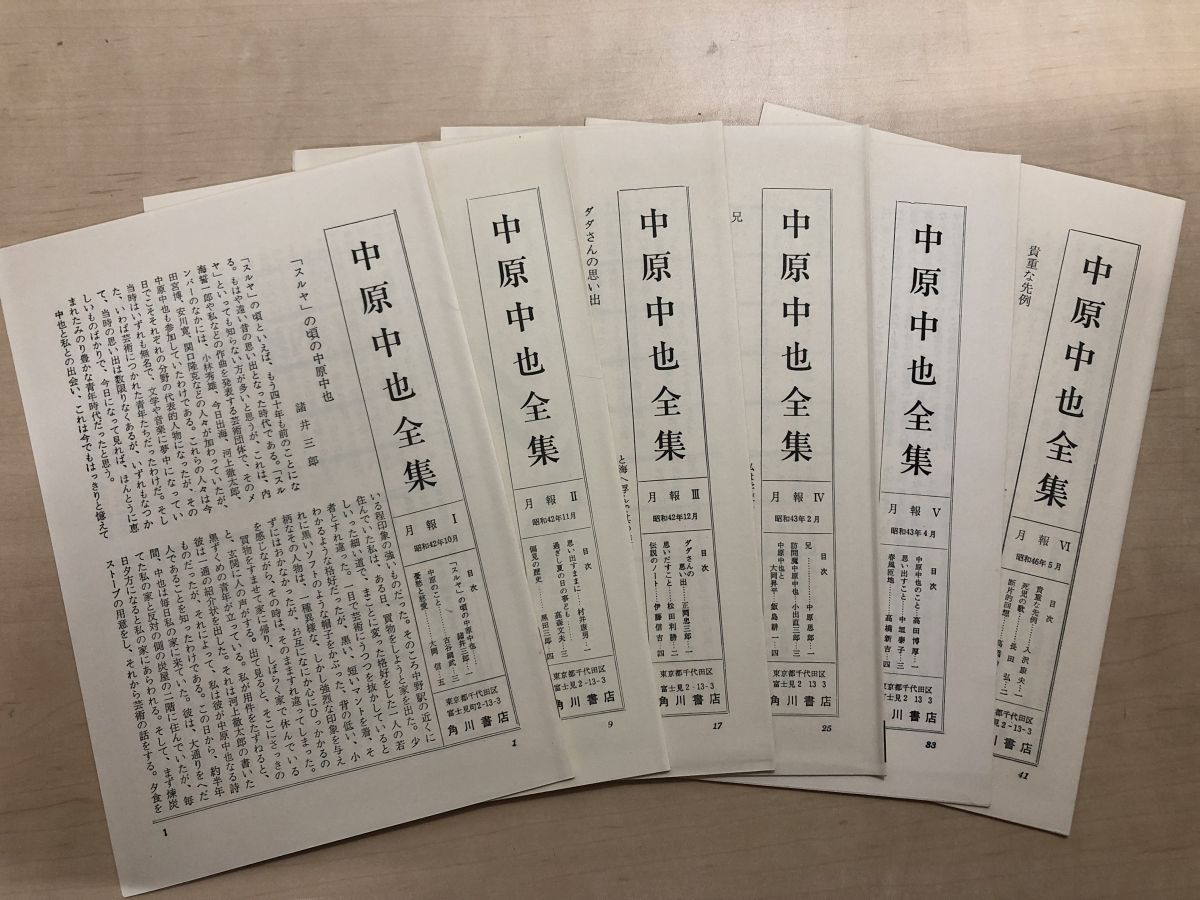 中原中也全集
月報 Ⅰ
昭和42年10月
目次
「スルヤ」の頃の中原中也……諸井三郎…一
中原のこと……古谷綱武…三
憂愁と慈愛……大岡信…五
東京都千代田区
富士見町2-13-3
角川書店
1
「スルヤ」の頃の中原中也
諸井三郎
「スルヤ」の頃といえば、もう四十年も前のことにな
る。もはや遠い昔の思い出となった時代である。「スル
ヤ」といっても知らない方が多いと思うが、これは、内
海誓一郎や私などの作曲を発表する芸術団体で、そのメ
ンバーのなかには、小林秀雄、今日出海、河上徹太郎、
中原中也も参加していたわけである。これらの人々は今
日でこそそれぞれの分野の代表的人物になったが、その
当時はいずれも無名で、文学や音楽に夢中になってい
た、いわば芸術につかれた青年たちだったわけだ。そし
て、当時の思い出は数限りなくあるが、いずれもなつか
しいものばかりで、今日になって見れば、ほんとうに恵
まれたみのり豊かな青年時代だったと思う。
中也と私との出会い、これは今でもはっきりと憶えて
いる程印象の強いものだった。そのころ中野駅の近くに
住んでいた私は、ある日、買物をしようと家を出た。少
しいった細い道で、まことに変った格好をした一人の若
者とすれ違った。一目で芸術にうつつを抜かしていると
わかるような格好だったが、黒い、短いマントを着、そ
れに黒いソフトのような帽子をかぶった、背の低い、小
柄なその人物は、一種異様な、しかし強烈な印象を与え
ずにはおかなかったが、お互になにか心にひっかかるの
を感じながら、その時は、そのまますれ違ってしまった。
買物をすませて家に帰り、しばらく家で休んでいる
と、玄関に人の声がする。出て見ると、そこにさっきの
黒ずくめの青年が立っている。私が用件をたずねると、
彼は一通の紹介状を出した。それは河上徹太郎の書いた
ものだったが、それによって、私は彼が中原中也なる詩
人であることを知ったわけである。この日から、約半年
間、中也は毎日私の家に来ていた。彼は、大通りをへだ
てた私の家と反対の側の炭屋の二階に住んでいたが、毎
日夕方になると私の家にあらわれる。そして、まず煉炭
ストーブの用意をし、それから芸術の話をする。夕食を
1
中原中也全集
月報 Ⅱ
昭和42年11月
目次
思い出すままに……村井康男…一
過ぎし夏の日の事ども……高森文夫…三
偏見の歴史……黒田三郎…四
東京都千代田区
富士見2-13-3
角川書店
9
ダダさんの思い出
中原中也全集
月報 Ⅲ
昭和42年12月
目次
ダダさんの思い出……正岡忠三郎…一
思いだすこと……松田利勝…二
伝説のノート……伊藤信吉…四
東京都千代田区
富士見2-13-3
角川書店
17
兄
中原中也全集
月報 Ⅳ
昭和43年2月
目次
兄……中原思郎…一
訪問魔中原中也…小出直三郎…三
中原中也と大岡昇平 飯島耕一…四
東京都千代田区
富士見2-13-3
角川書店
25
中原中也全集
月報 Ⅴ
昭和43年4月
目次
中原中也のこと…高田博厚…一
思い出すこと…中垣泰子…三
春風匝地……高橋新吉…四
東京都千代田区
富士見2-13-3
角川書店
33
貴重な先例
中原中也全集
月報 Ⅵ
昭和46年5月
目次
貴重な先例……入沢康夫…一
死児の歌……長田弘…二
断片的回想
都千代田区
見2-13-3
川書店
41